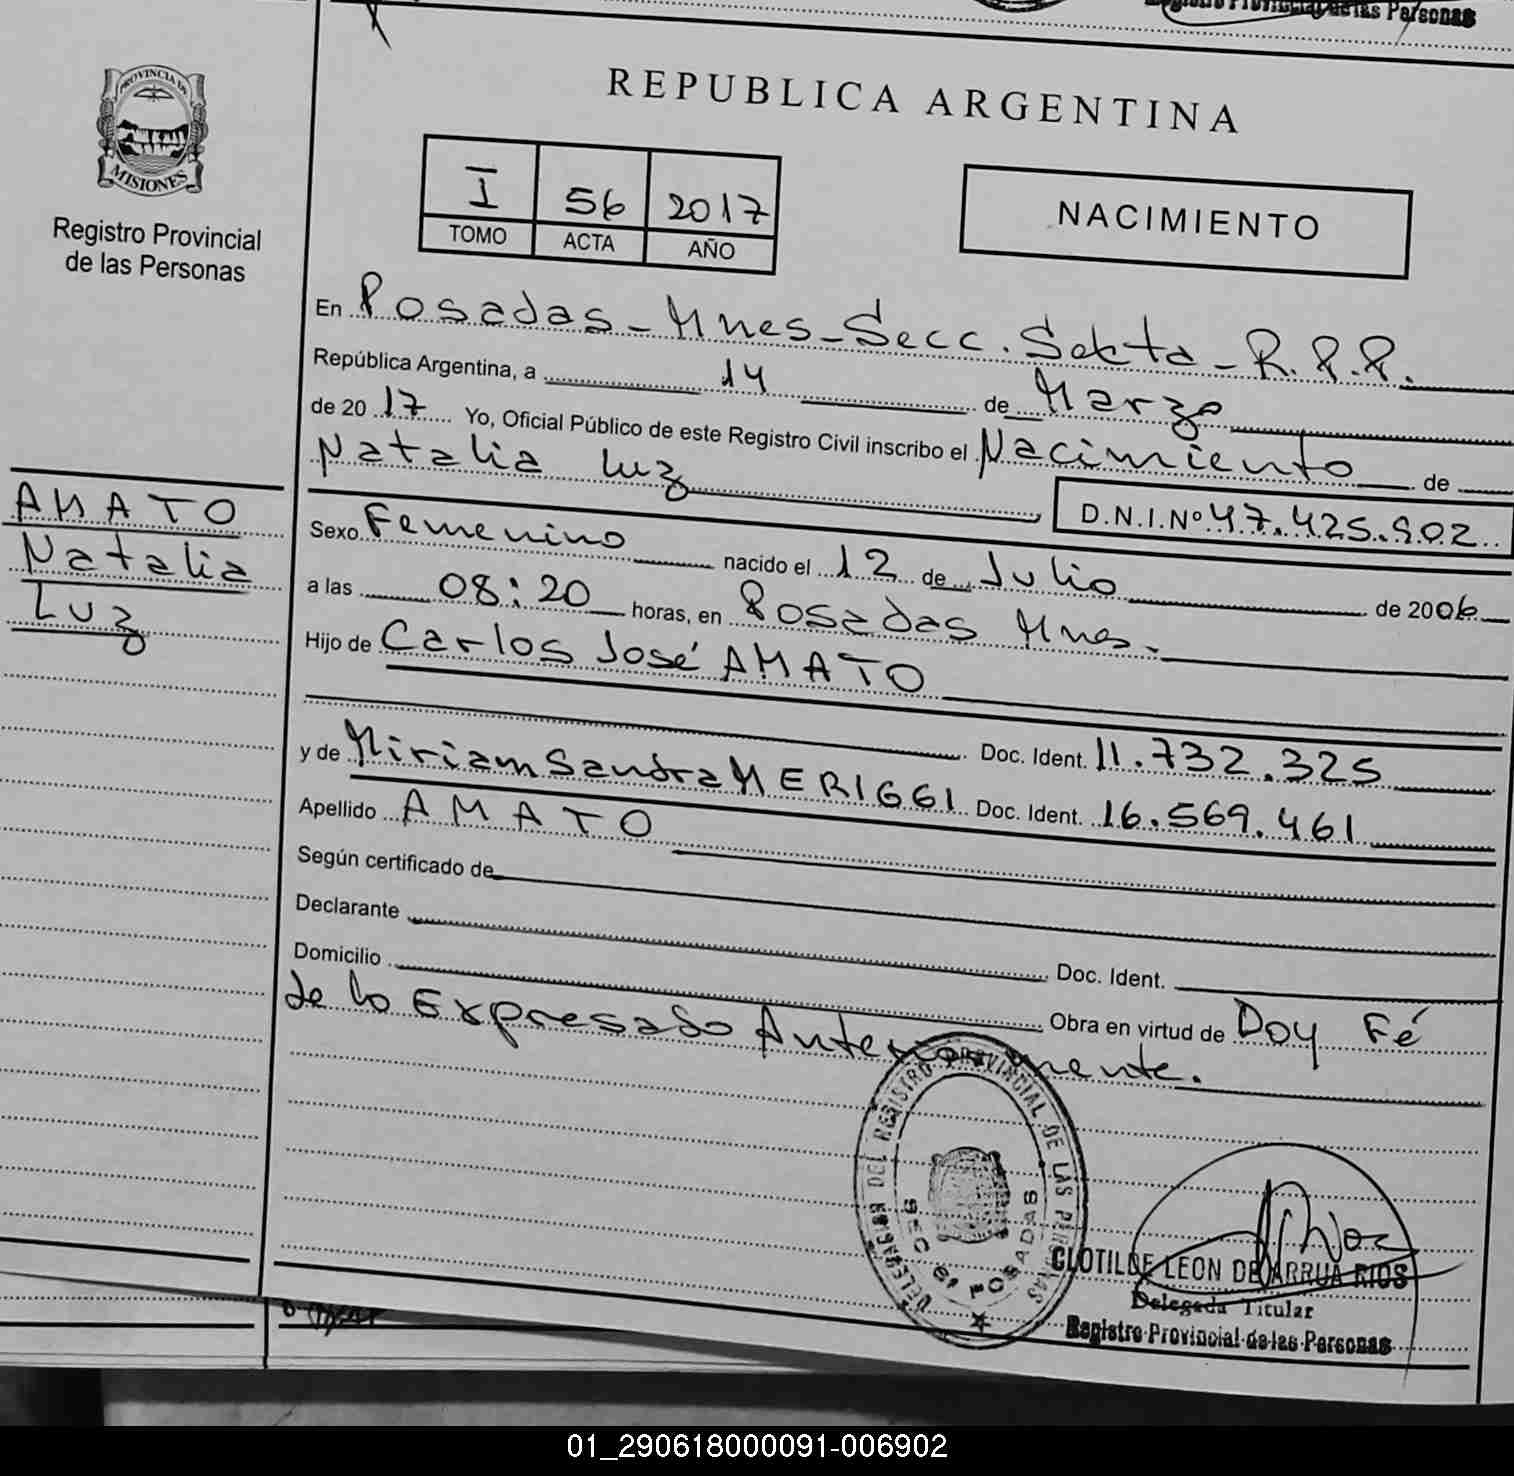 Registro Provincial de las Personas
PROVINCIA DE
MISIONES
Registro Provincial
de las Personas
AMATO
Natalia
Luz
REPUBLICA ARGENTINA
I 56 2017
TOMO ACTA AÑO
NACIMIENTO
En Posadas - Mnes - Secc. Sexta - R.P.P.
República Argentina, a 14 de Marzo
de 2017 Yo, Oficial Público de este Registro Civil inscribo el Nacimiento de
Natalia Luz
D.N.I.Nº 47.425.902
Sexo Femenino nacido el 12 de Julio de 2006
a las 08:20 horas, en Posadas Mnes.
Hijo de Carlos José AMATO
Doc. Ident. 11.732.325
y de Miriam Sandra MERIGGI Doc. Ident. 16.569.461
Apellido AMATO
Según certificado de
Declarante
Doc. Ident.
Domicilio
Obra en virtud de Doy Fé
de lo Expresado Anteriormente.
DELEGACION DEL REGISTRO PROVINCIAL DE LAS PERSONAS
SEC 6ª POSADAS
CLOTILDE LEON DE ARRUA RIOS
Delegada Titular
Registro Provincial de las Personas
01_290618000091-006902